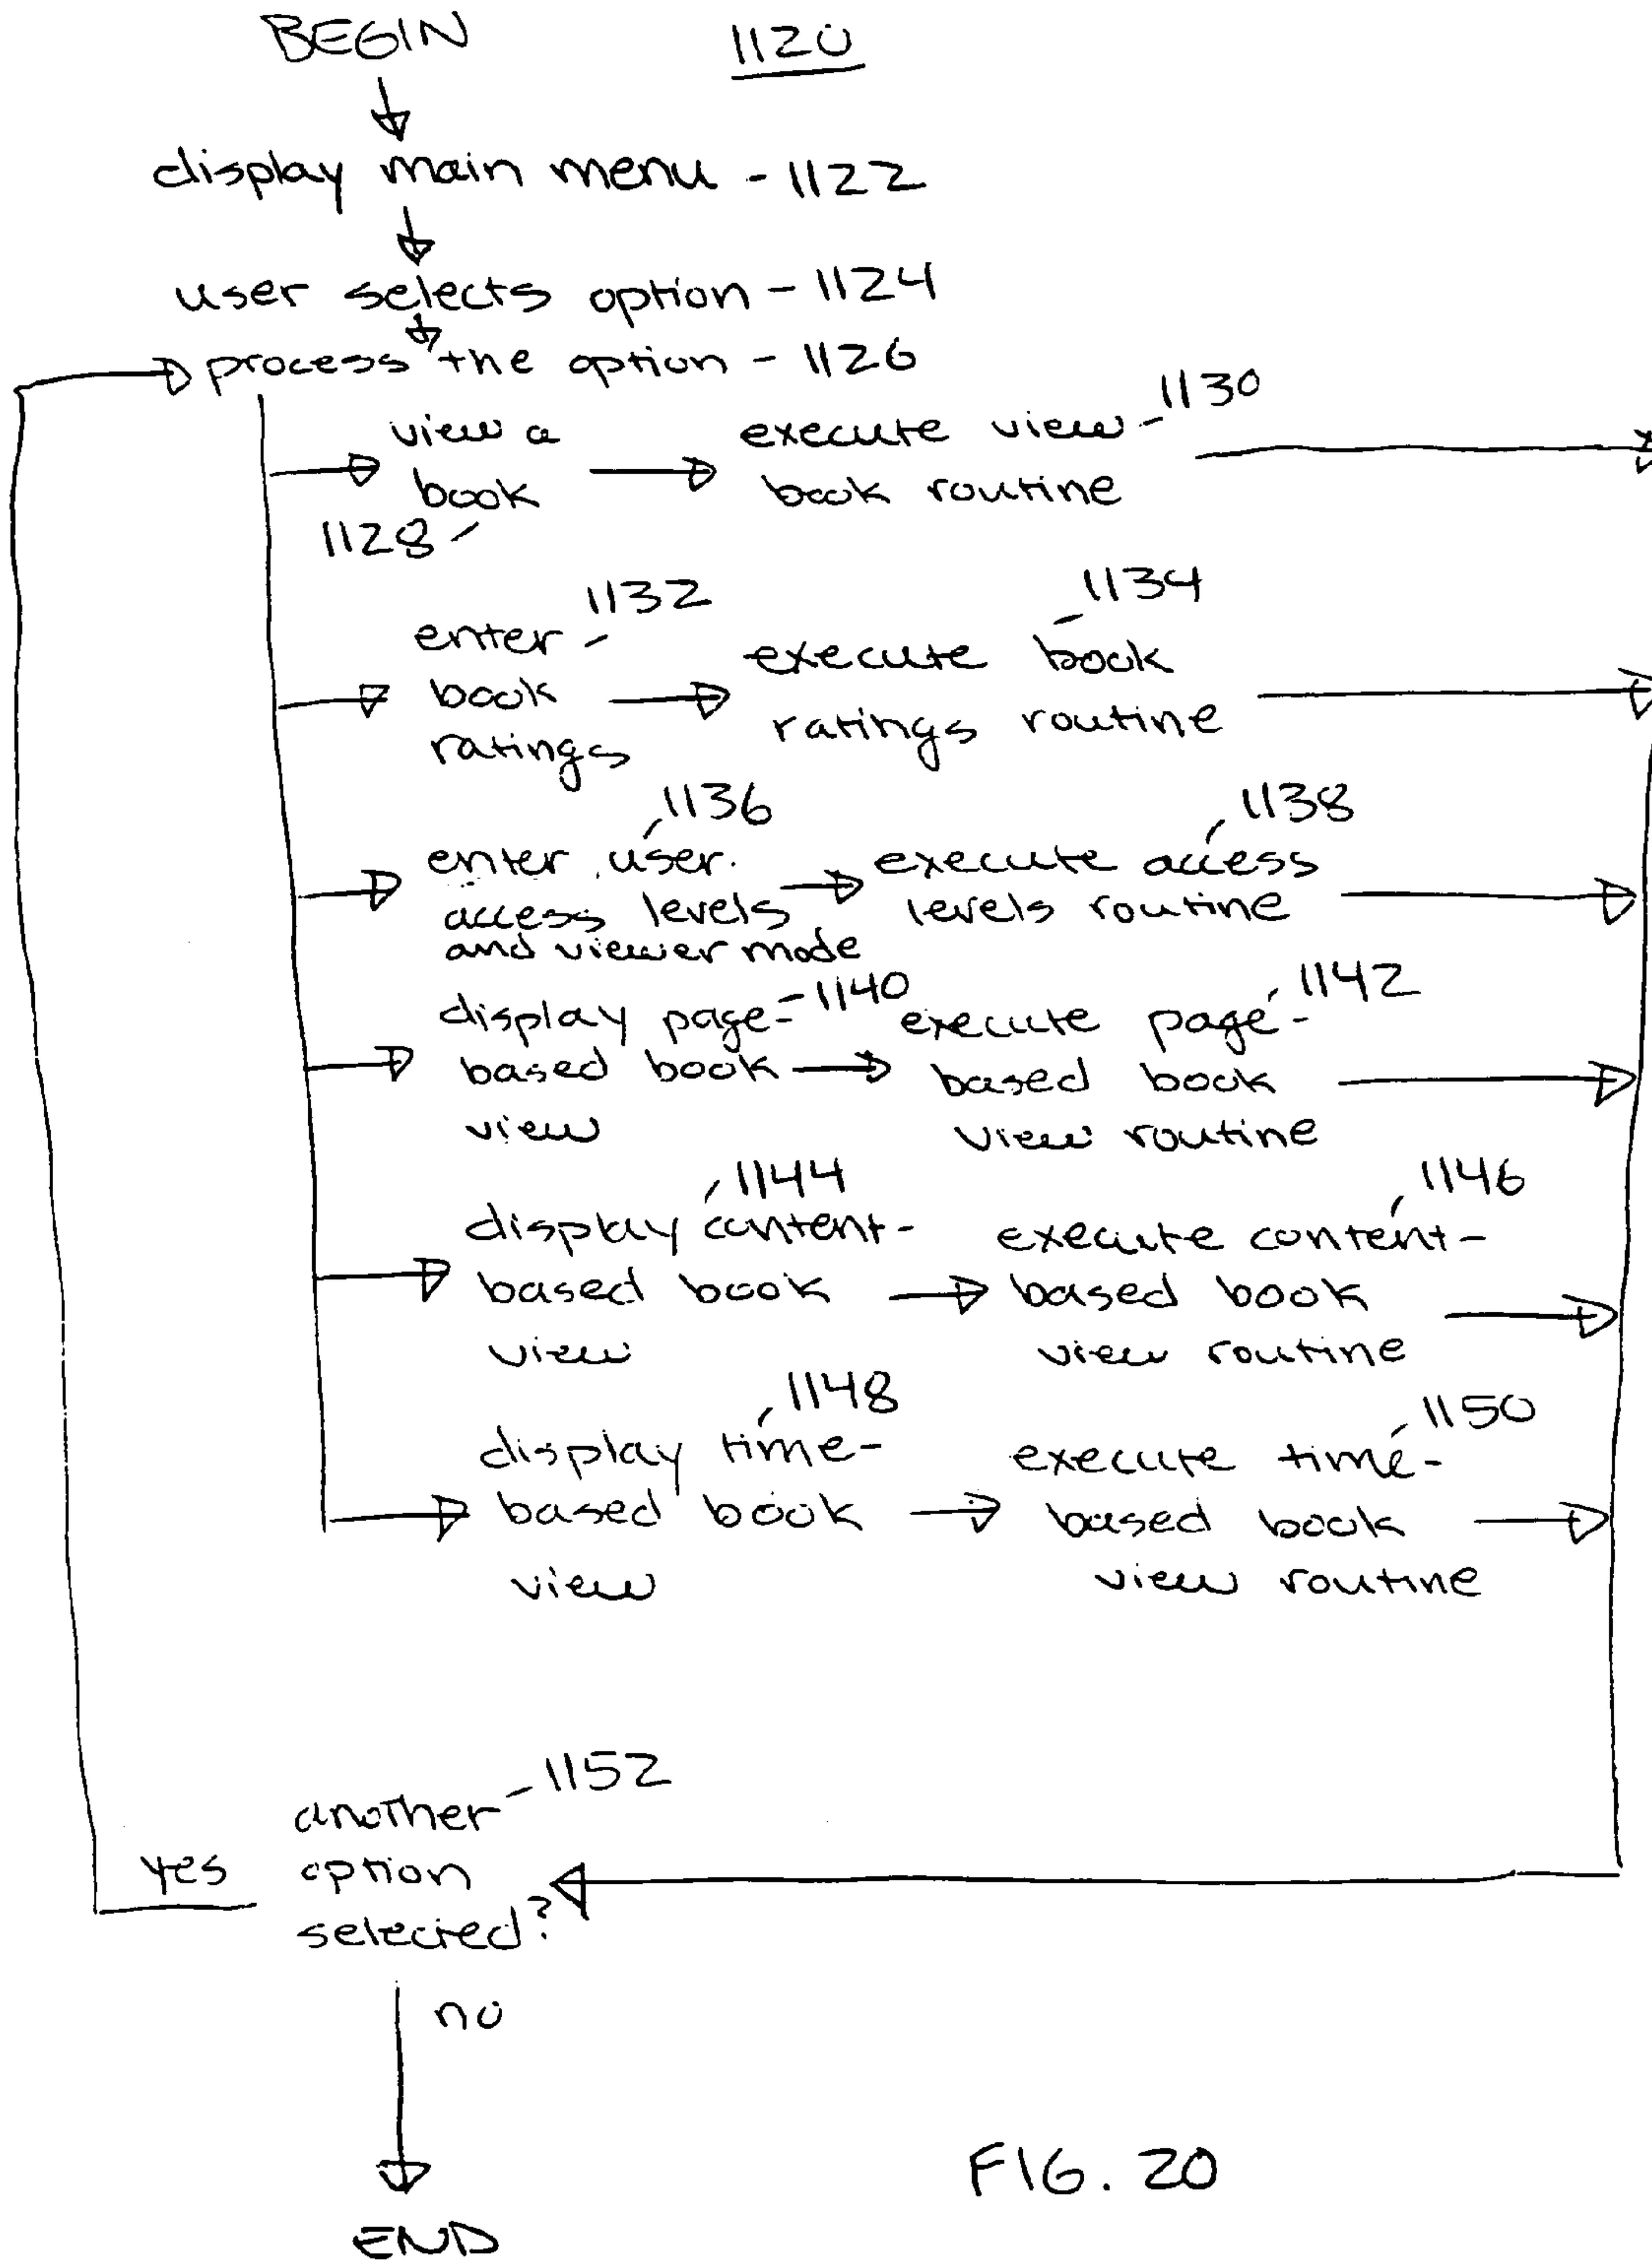 BEGIN 1120
display main menu - 1122
user selects option - 1124
process the option - 1126
view a
book
1128
execute view - 1130
book routine
enter - 1132
book
ratings
1134
execute book
ratings routine
1136
enter user
access levels
and viewer mode
1138
execute access
levels routine
display page- 1140
based book
view
execute page- 1142
based book
view routine
1144
display content-
based book
view
1146
execute content-
based book
view routine
1148
display time-
based book
view
1150
execute time-
based book
view routine
another - 1152
option
selected?
yes
no
END
FIG. 20